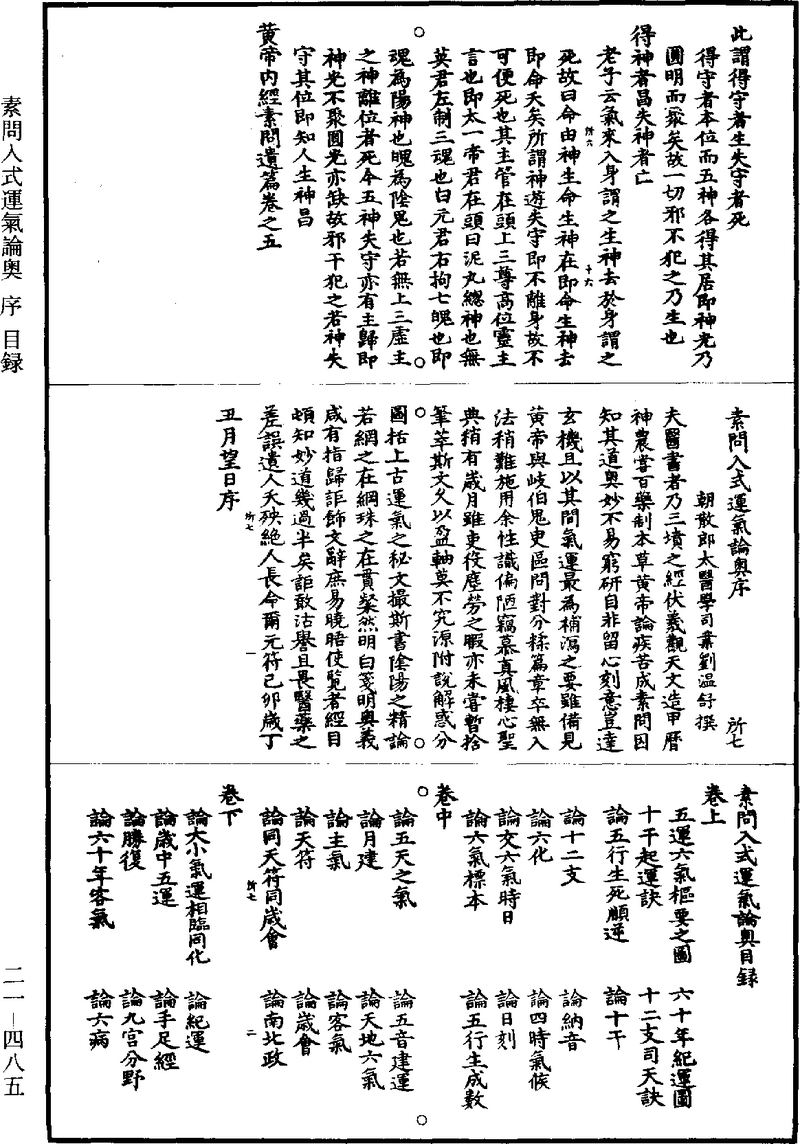 素問入式運氣論奧 序 目録
二一—四八五
此謂得守者生失守者死
得守者本位而五神各得其居即神光乃
圓明而聚矣故一切邪不犯之乃生也
得神者昌失神者亡
老子云氣來入身謂之生神去於身謂之
死故曰命由神生命生神在即命生神去
即命夭矣所謂神遊失守即不離身故不
可便死也其主管在頭上三尊高位靈主
言也即太一帝君在頭曰泥丸總神也無
英君左制三魂也白元君右拘七魄也即
魂為陽神也魄為陰鬼也若無上三虛主
之神離位者死今五神失守亦有主歸即
神光不聚圓光亦缺故邪干犯之若神失
守其位即知人生神昌
黄帝内經素問遺篇卷之五
所六
十六
素問入式運氣論奧序
所七
朝散郎太醫學司業劉温舒撰
夫醫書者乃三墳之經伏羲觀天文造甲曆
神農嘗百藥制本草黄帝論疾苦成素問因
知其道奧妙不易窮研自非留心刻意豈達
玄機且以其間氣運最為補瀉之要雖備見
黄帝與岐伯鬼臾區問對分糅篇章卒無入
法稍難施用余性識偏陋竊慕真風棲心聖
典稍有歲月雖吏役塵勞之暇亦未嘗暫捨
筆萃斯文久以盈軸莫不究源附說解惑分
圖括上古運氣之秘文撮斯書陰陽之精論
若網之在綱珠之在貫粲然明白箋明奧義
咸有指歸詎飾文辭庶易曉晤使覽者經目
頓知妙道幾過半矣詎敢沽譽且畏醫藥之
差誤遺人夭殃絶人長命爾元符己卯歲丁
丑月望日序
所七
一
素問入式運氣論奧目録
卷上
五運六氣樞要之圖 六十年紀運圖
十干起運訣 十二支司天訣
論五行生死順逆 論十干
論十二支 論納音
論六化 論四時氣候
論交六氣時日 論日刻
論六氣標本 論五行生成數
卷中
論五天之氣 論五音建運
論月建 論天地六氣
論主氣 論客氣
論天符 論歲會
論同天符同歲會 論南北政
所七
二
卷下
論大小氣運相臨同化 論紀運
論歲中五運 論手足經
論勝復 論九宫分野
論六十年客氣 論六病